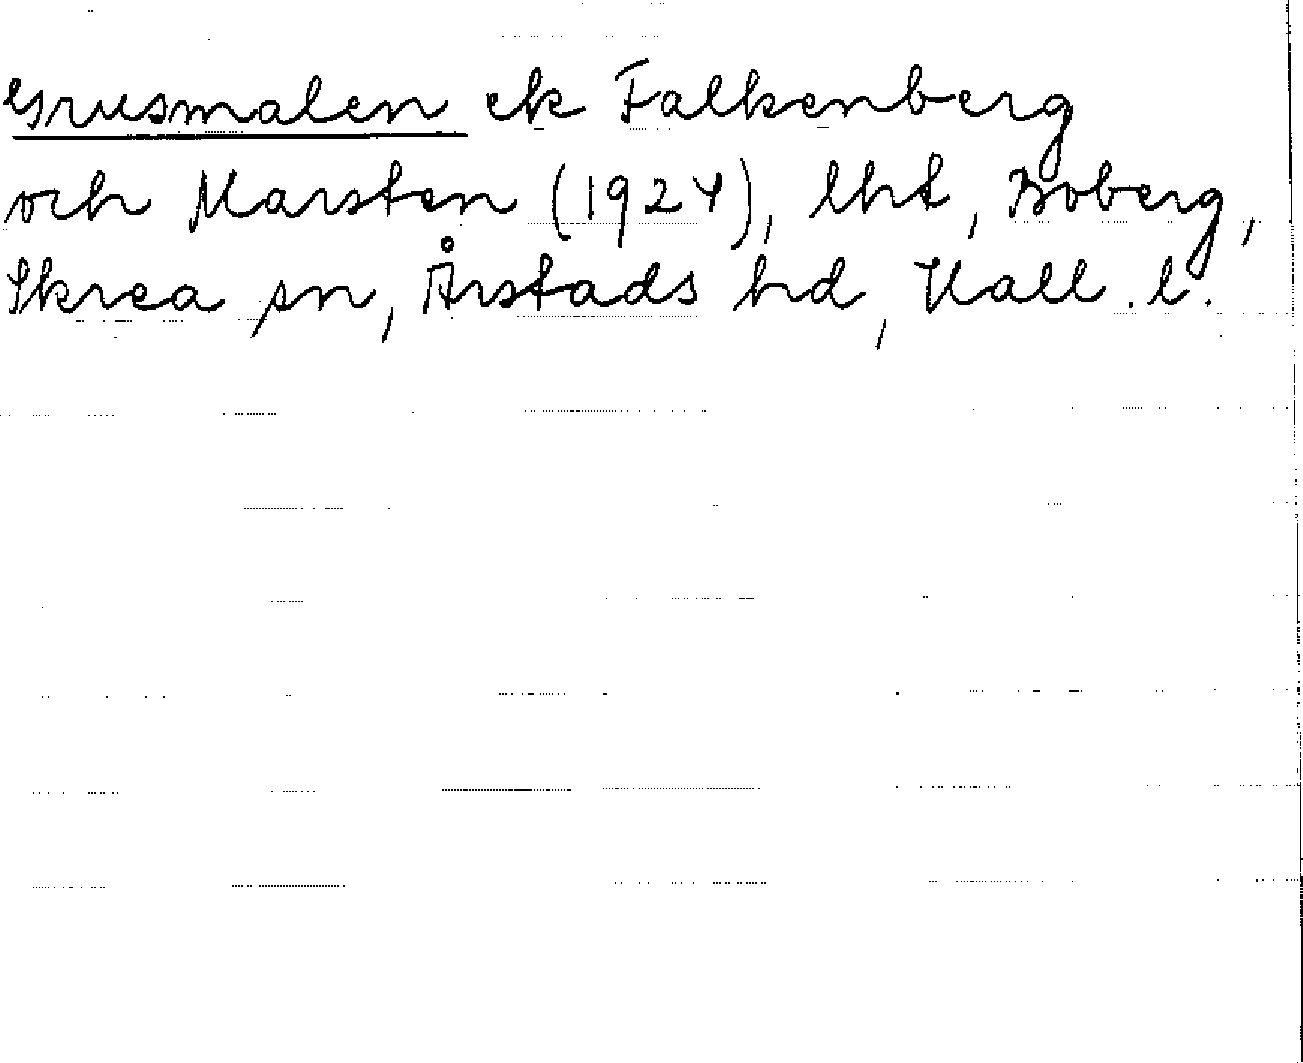 Grusmalen ek Falkenberg
och Marsten (1924), lht, Boberg,
Skrea sn, Årstads hd, Hall. l.